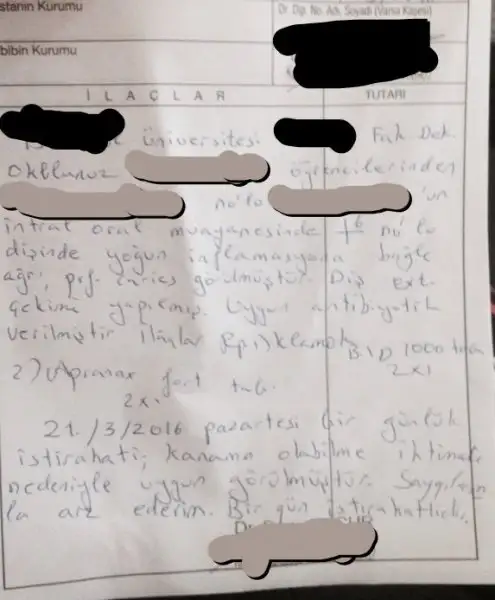 stanın Kurumu
Dr. Dip. No. Adı, Soyadı (Varsa Kaşesi)
bibin Kurumu
İ L A Ç L A R
TUTARI
Üniversitesi Fak Dek.
Okulunuz öğrencilerinden
no'lu 'un
intra oral muayenesinde 6 nu'lu
dişinde yoğun inflamasyona bağlı
ağrı, görülmüştür. Diş ext.
çekimi yapılmış. Uygun antibiyotik
verilmiştir İlaçlar Rp 1) Klamok BID 1000 tab
2x1
2) Apranax fort tab.
2x1
21/3/2016 pazartesi bir günlük
istirahati; kanama olabilme ihtimali
nedeniyle uygun görülmüştür. Saygılarım
la arz ederim. Bir gün istirahatlidir.